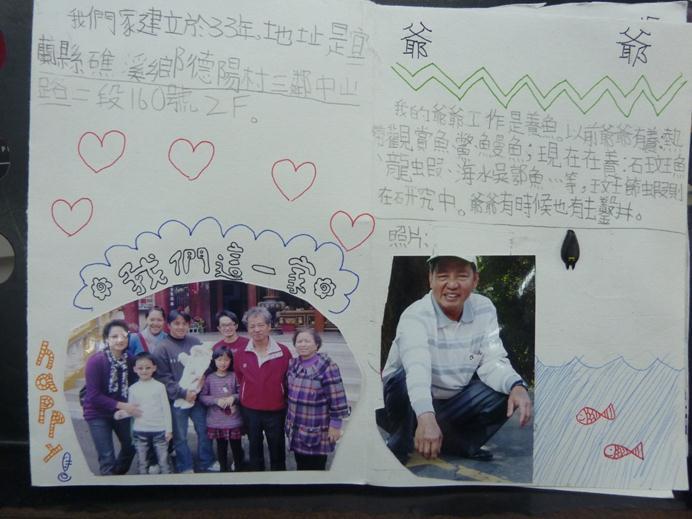 我們家建立於33年,地址是宜
蘭縣礁溪鄉德陽村三鄰中山
路二段160號2F。
我們這一家
happy!
爺爺
我的爺爺工作是養魚,以前爺爺有養:熱
帶觀賞魚、鱉、鰻魚;現在在養:石斑魚
、龍虫蝦、海水吳郭魚…等,斑節蝦則
在研究中。爺爺有時候也有去鑿井。
照片: